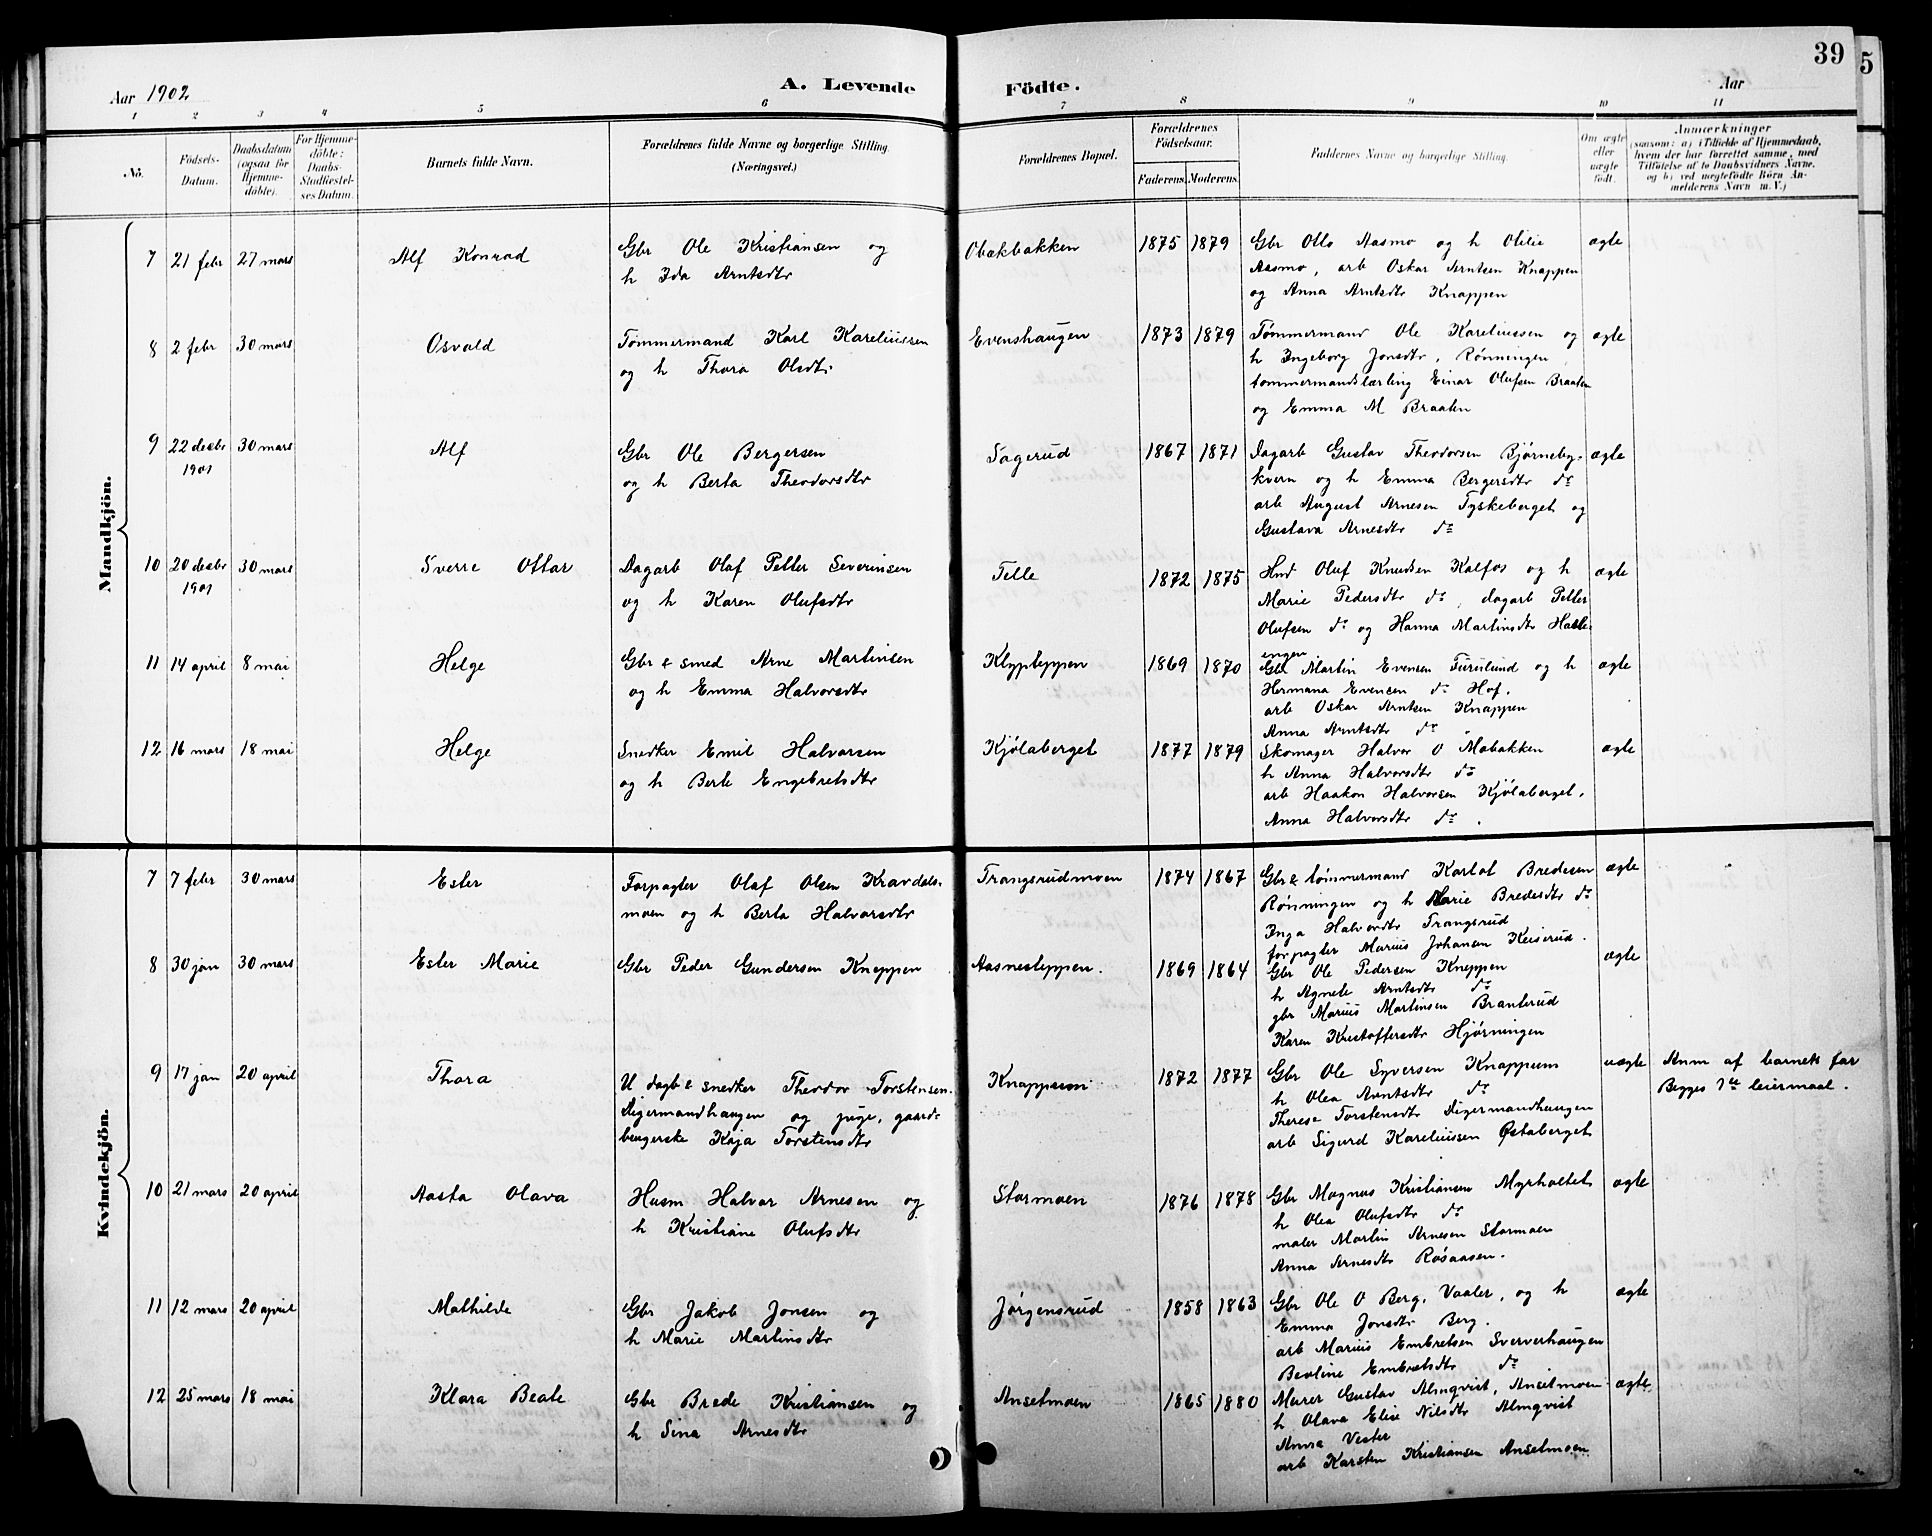 39
5
Aar 1902
A. Levende
Födte.
Aar
1 2 3 4 5 6 7 8 9 10 11
No.
Födsels-
Datum.
Daabsdatum
(ogsaa for
Hjemme-
döbte).
For Hjemme-
döbte:
Daabs-
Stadfæstel-
ses Datum.
Barnets fulde Navn.
Forældrenes fulde Navne og borgerlige Stilling.
(Næringsvei.)
Forældrenes Bopæl.
Forældrenes
Födselsaar.
Faderens. Moderens.
Faddernes Navne og borgerlige Stilling.
Om ægte
eller
uægte
födt.
Anmærkninger
(saasom: a) i Tilfælde af Hjemmedaab,
hvem der har forrettet samme, med
Tilföielse af to Daabsvidners Navne,
og b) ved uægtefödte Börn An-
melderens Navn m. V.)
Mandkjön.
7 21 febr 27 mars Alf Konrad
Gbr Ole Kristiansen og
h Ida Arntsdtr
Obækbakken 1875 1879
Gbr Otto Aasmo og h Otilie
Aasmo, arb Oskar Arntsen Knappen
og Anna Arntsdtr Knappen
ægte
8 2 febr 30 mars Osvald
Tømmermand Karl Kareliussen
og h Thora Olsdtr
Evenshaugen 1873 1879
Tømmermand Ole Kareliussen og
h Ingeborg Jonsdtr, Rønningen
tømmermandslærling Einar Olufsen Braaten
og Emma M Braaten
ægte
9 22 desbr 1901 30 mars Alf
Gbr Ole Bergersen
og h Berta Theodorsdtr
Sagerud 1867 1871
Dagarb Gustav Theodorsen Bjørneby-
kvern og h Emma Bergersdtr do
arb August Arnesen Tyskeberget og
Gustava Arnesdtr do
ægte
10 20 desbr 1901 30 mars Sverre Ottar
Dagarb Olaf Petter Severinsen
og h Karen Olufsdtr
Telle 1872 1875
Hmd Oluf Knudsen Kalfos og h
Marie Pedersdtr do, dagarb Petter
Olufsen do og Hanna Martinsdtr Hasle-
engen
ægte
11 14 april 8 mai Helge
Gbr & smed Arne Martinsen
og h Emma Halvorsdtr
Klypteppen 1869 1870
Gbr Martin Evensen Turulund og h
Hermana Evensen do Hof.
arb Oskar Arntsen Knappen
Anna Arntsdtr do
ægte
12 16 mars 18 mai Helge
Snedker Emil Halvorsen
og h Berte Engebretsdtr
Kjølaberget 1877 1879
Skomager Halvor O Mobakken
h Anna Halvorsdtr do
arb Haakon Halvorsen Kjølaberget,
Anna Halvorsdtr do.
ægte
Kvindekjön.
7 7 febr 30 mars Ester
Forpagter Olaf Olsen Kravdals-
moen og h Berta Halvorsdtr
Trangsrudmoen 1874 1867
Gbr & tømmermand Karlot Bredesen
Rønningen og h Marie Bredesdtr do
Inga Halvordtr Trangsrud
forpagter Marius Johansen Keiserud.
ægte
8 30 jan 30 mars Ester Marie
Gbr Peder Gundersen Kneppen
Aasnesteppen. 1869 1864
Gbr Ole Pedersen Kneppen
h Agnete Arntsdtr do
gbr Marius Martinsen Branterud
Karen Kristoffersdtr Hjørningen
ægte
9 17 jan 20 april Thora
U dagb & snedker Theodor Torstensen
Digermandhaugen og pige, gaard-
bergerske Kaja Torstensdtr
Knappum 1872 1877
Gbr Ole Syversen Knappum
h Olea Arntsdtr do
Therese Torstensdtr Digermandhaugen
arb Sigurd Kareliussen Østaberget
uægte
Anm af barnets far
Begges 1te leiermaal.
10 21 mars 20 april Aasta Olava
Husm Halvor Arnesen og
h Kristiane Olufsdtr
Stormoen 1876 1878
Gbr Magnus Kristiansen Myrholtet
h Olea Olufsdtr do
maler Martin Arnesen Stormoen
Anna Arnesdtr Rosaasen.
ægte
11 12 mars 20 april Mathilde
Gbr Jakob Jonsen og
h Marie Martinsdtr
Jørgensrud 1858 1863
Gbr Ole O Berg, Vaaler, og h
Emma Jonsdtr Berg.
arb Marius Embretsen Sververhaugen
Beoline Embretsdtr do
ægte
12 25 mars 18 mai Klara Beate
Gbr Brede Kristiansen og
h Sina Arnesdtr
Anselmoen 1865 1880
Murer Gustav Almqvist, Anselmoen
h Olava Elise Nilsdtr Almqvist
Anna Vester
arb Karsten Kristiansen Anselmoen
ægte